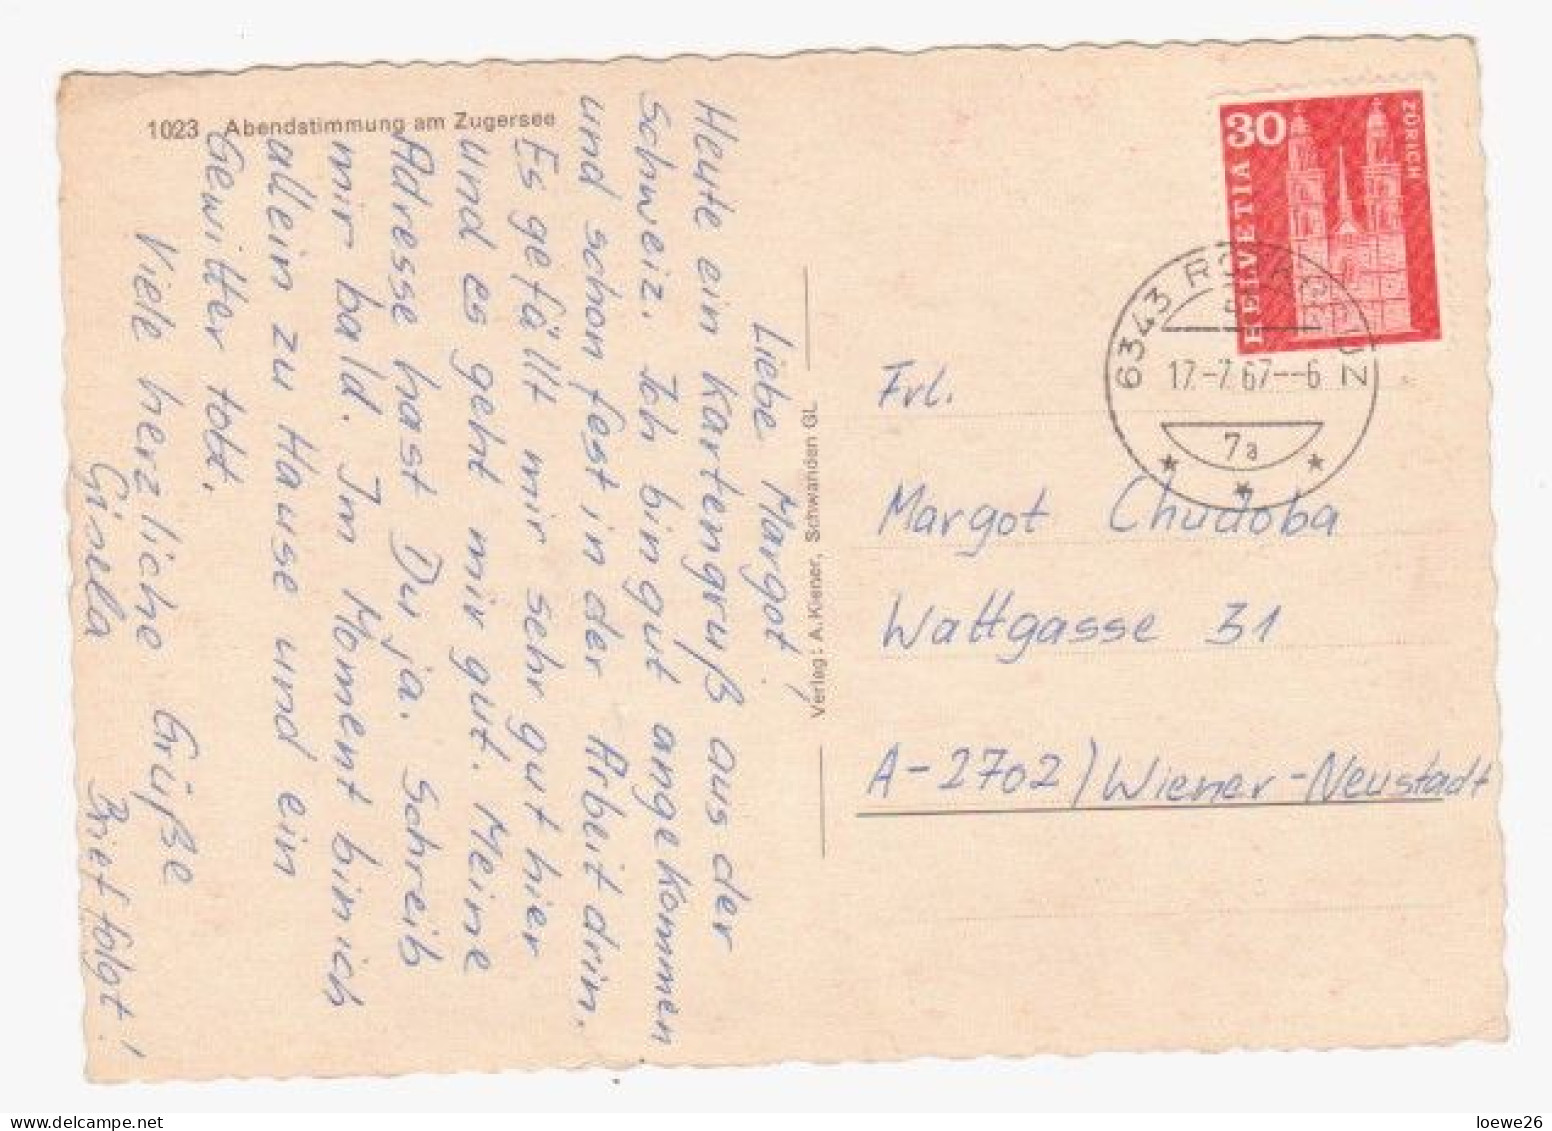 1023 Abendstimmung am Zugersee
Liebe Margot
Heute ein Kartengruß aus der
Schweiz. Ich bin gut angekommen
und schon fest in der Arbeit drin.
Es gefällt mir sehr gut hier
und es geht mir gut. Meine
Adresse hast Du ja. Schreib
mir bald. Im Moment bin ich
allein zu Hause und ein
Gewitter tobt.
Viele herzliche Grüße
Gisela Brief folgt!
Verlag: A. Kiener, Schwanden GL
30
HELVETIA
ZÜRICH
6343
17.-7.67--6
7a
Frl.
Margot Chudoba
Wattgasse 31
A-2702/Wiener-Neustadt
loewe26